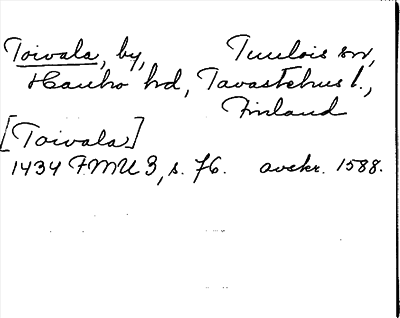 Toivala, by, Tuulois sn,
Hauho hd, Tavastehus l.,
Finland
[Toivala]
1434 FMU 3, s. 76. avskr. 1588.